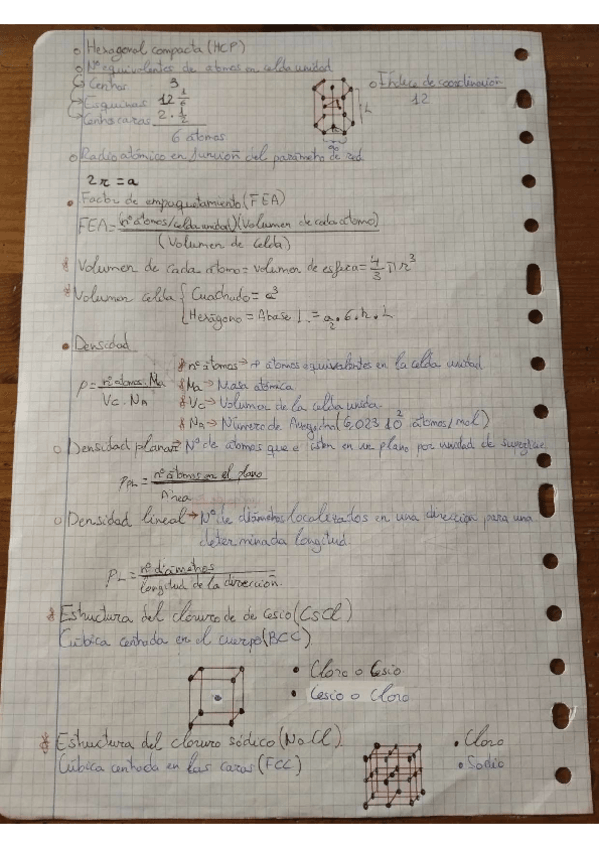 o Hexagonal compacta (HCP)
o Nº equivalentes de átomos en celda unidad
Centros 3
Esquinas 12 · 1/6
Centros caras 2 · 1/2
6 átomos
o Índice de coordinación
12
o Radio atómico en función del parámetro de red
2r = a
• Factor de empaquetamiento (FEA)
FEA = (nº átomos/celda unidad)(Volumen de cada átomo) / (Volumen de Celda)
* Volumen de cada átomo = volumen de esfera = 4/3 π r³
* Volumen celda { Cuadrado = a³
Hexágono = Abase · L = a/2 · 6 · h · L
• Densidad
ρ = nº átomos · Ma / Vc · NA
* nº átomos → nº átomos equivalentes en la celda unidad
* Ma → Masa atómica
* Vc → Volumen de la celda unida
* NA → Número de Avogadro (6,023 10² átomos/mol)
o Densidad planar → Nº de átomos que en un plano por unidad de superficie
ρPL = nº átomos en el plano / Área
o Densidad lineal → Nº de diámetros localizados en una dirección para una
determinada longitud.
ρL = nº diámetros / longitud de la dirección.
* Estructura del cloruro de de Cesio (CsCl)
Cúbica centrada en el cuerpo (BCC)
• Cloro o Cesio
• Cesio o Cloro
* Estructura del cloruro sódico (NaCl)
Cúbica centrada en las caras (FCC)
• Cloro
• Sodio